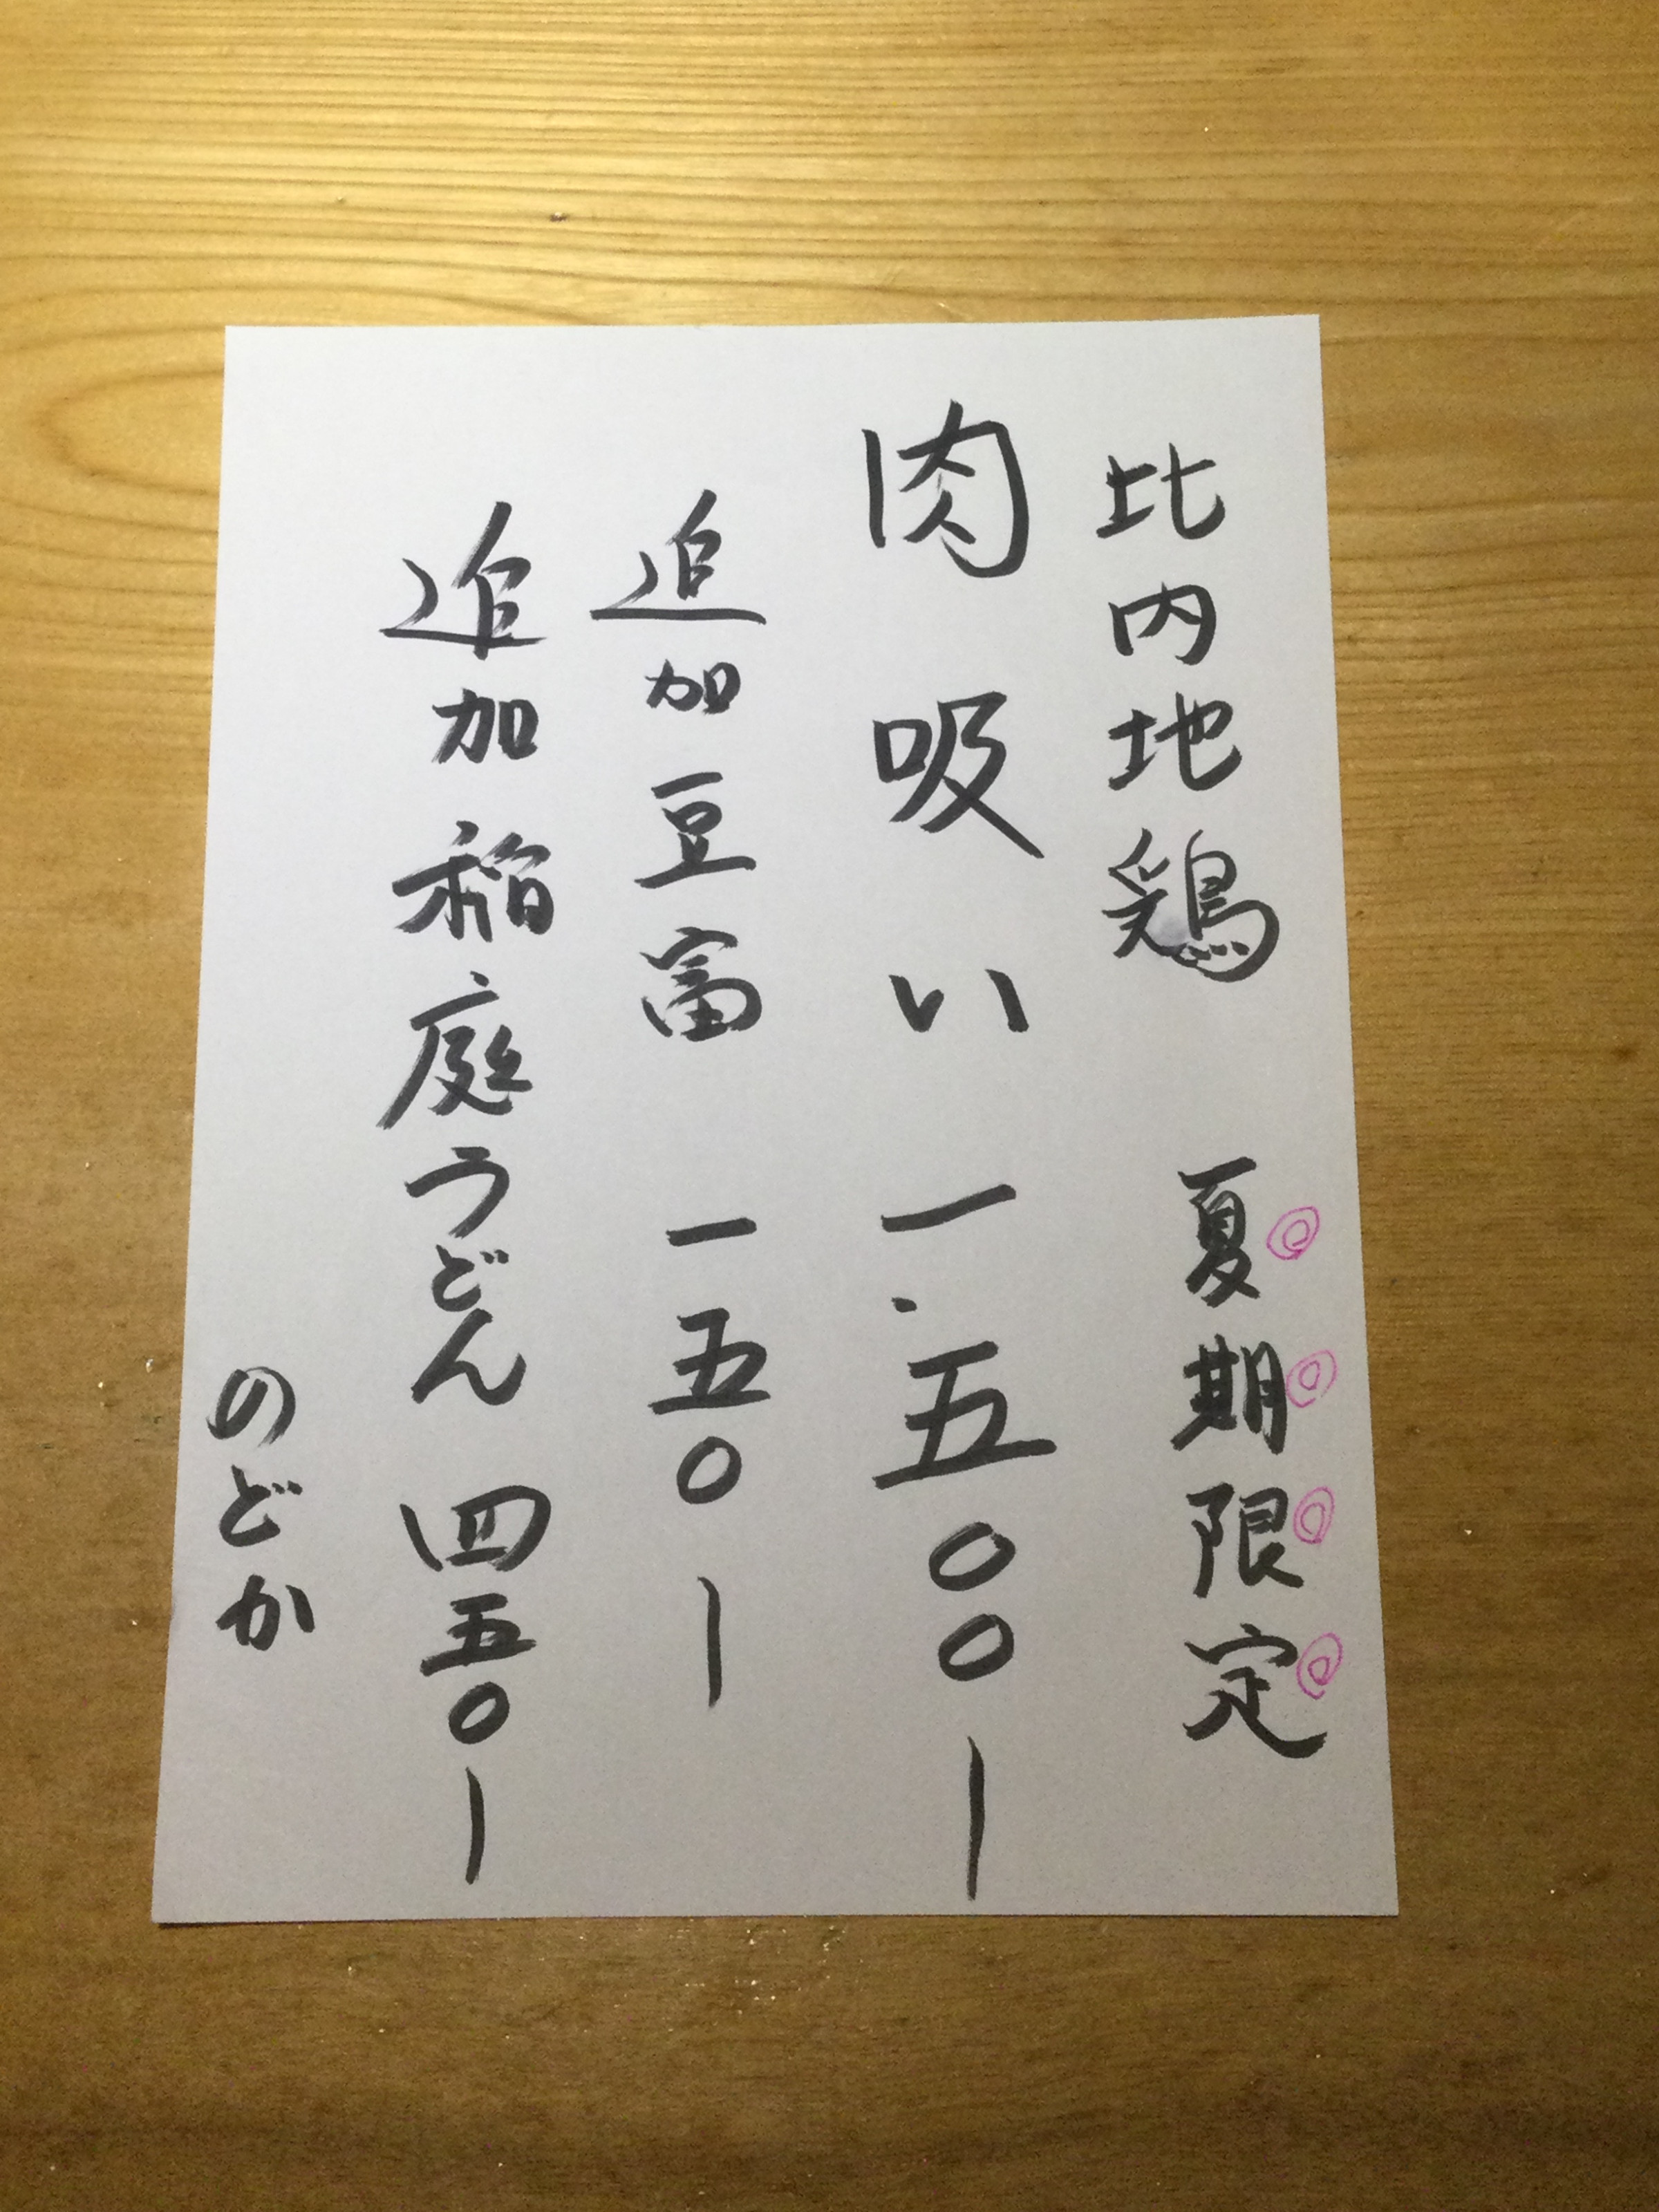 比内地鶏 夏期限定
肉吸い 一.五〇〇ー
追加豆富 一五〇ー
追加稲庭うどん 四五〇ー
のどか